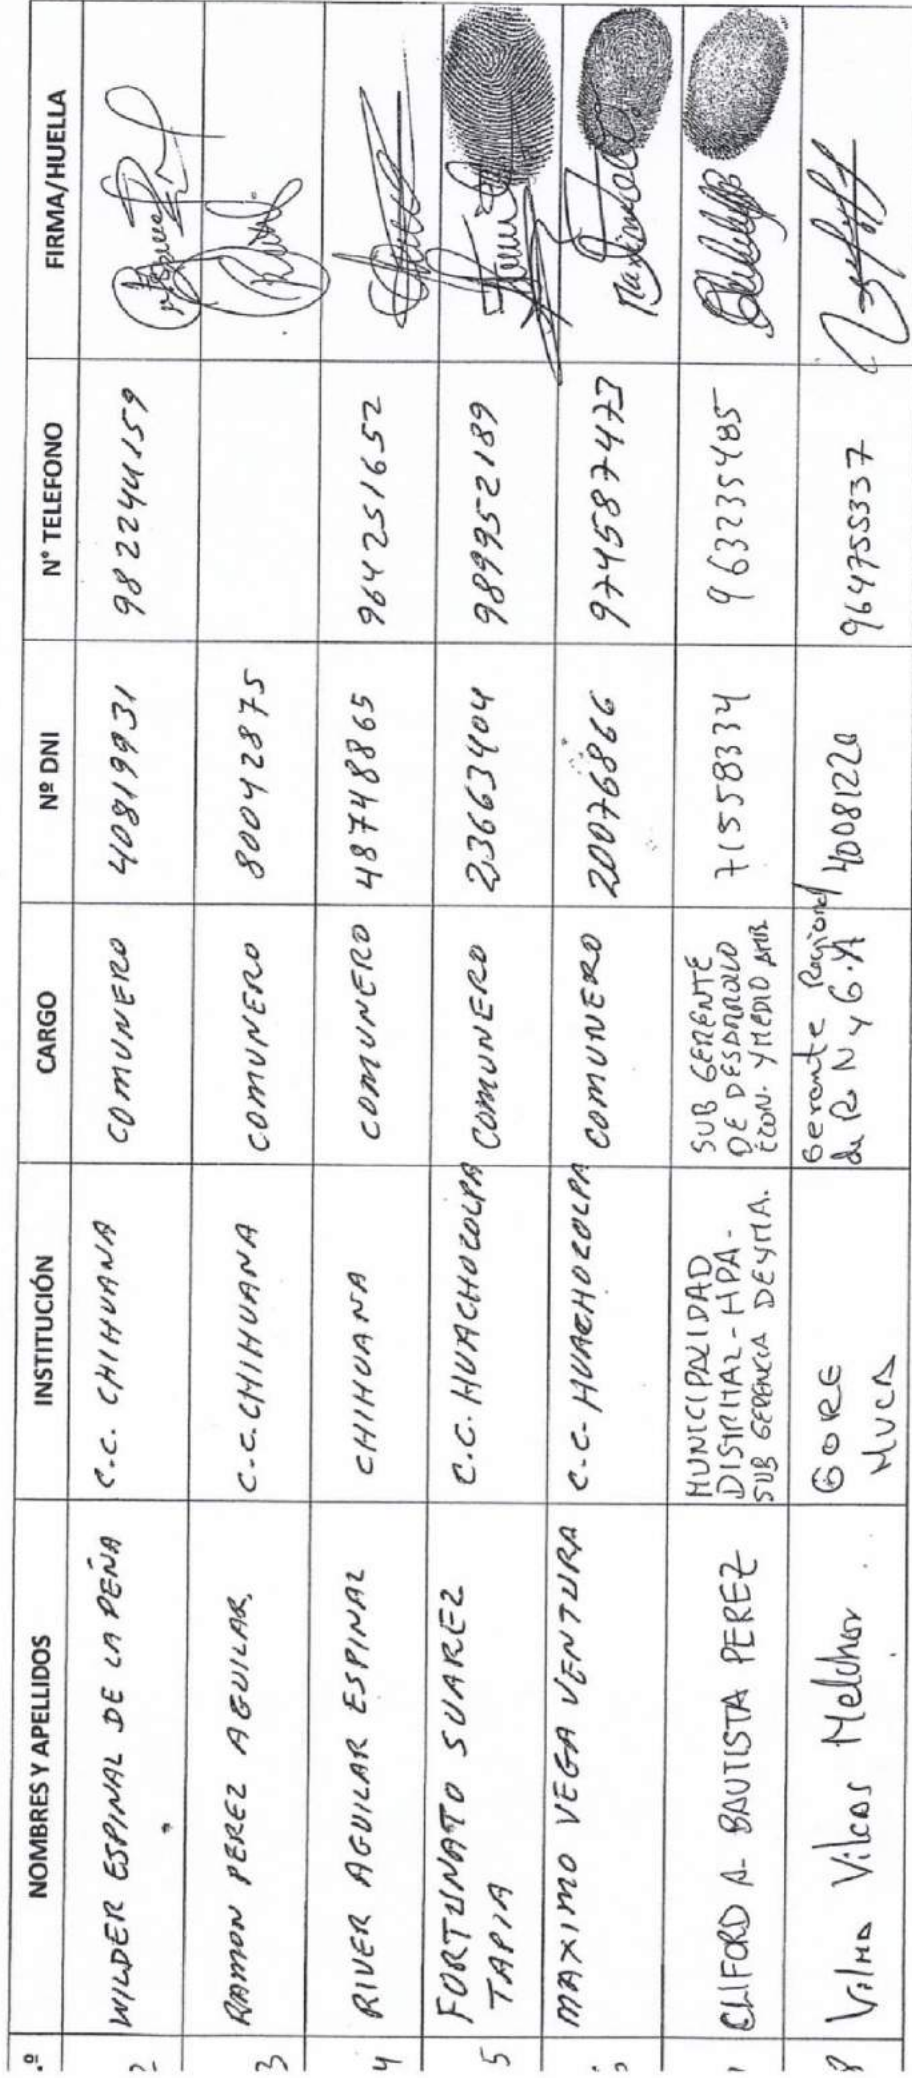 .º NOMBRES Y APELLIDOS INSTITUCIÓN CARGO Nº DNI N° TELEFONO FIRMA/HUELLA
2 WILDER ESPINAL DE LA PEÑA C.C. CHIHUANA COMUNERO 40819931 982244159
3 RAMON PEREZ AGUILAR C.C. CHIHUANA COMUNERO 80042875
4 RIVER AGUILAR ESPINAL CHIHUANA COMUNERO 48748865 964251652
5 FORTUNATO SUAREZ
TAPIA C.C. HUACHOCOLPA COMUNERO 23663404 989952189
MAXIMO VEGA VENTURA C.C. HUACHOCOLPA COMUNERO 20076866 974587473
CLIFORD A. BAUTISTA PEREZ
MUNICIPALIDAD
DISTRITAL - HPA -
SUB GERENCIA DEYMA.
SUB GERENTE
DE DESARROLLO
ECON. Y MEDIO AMB.
71558334 963235485
8 Vilma Vilcas Melchor
GORE
HVCA
Gerente Regional
de R N y G.A
40081220 964755337